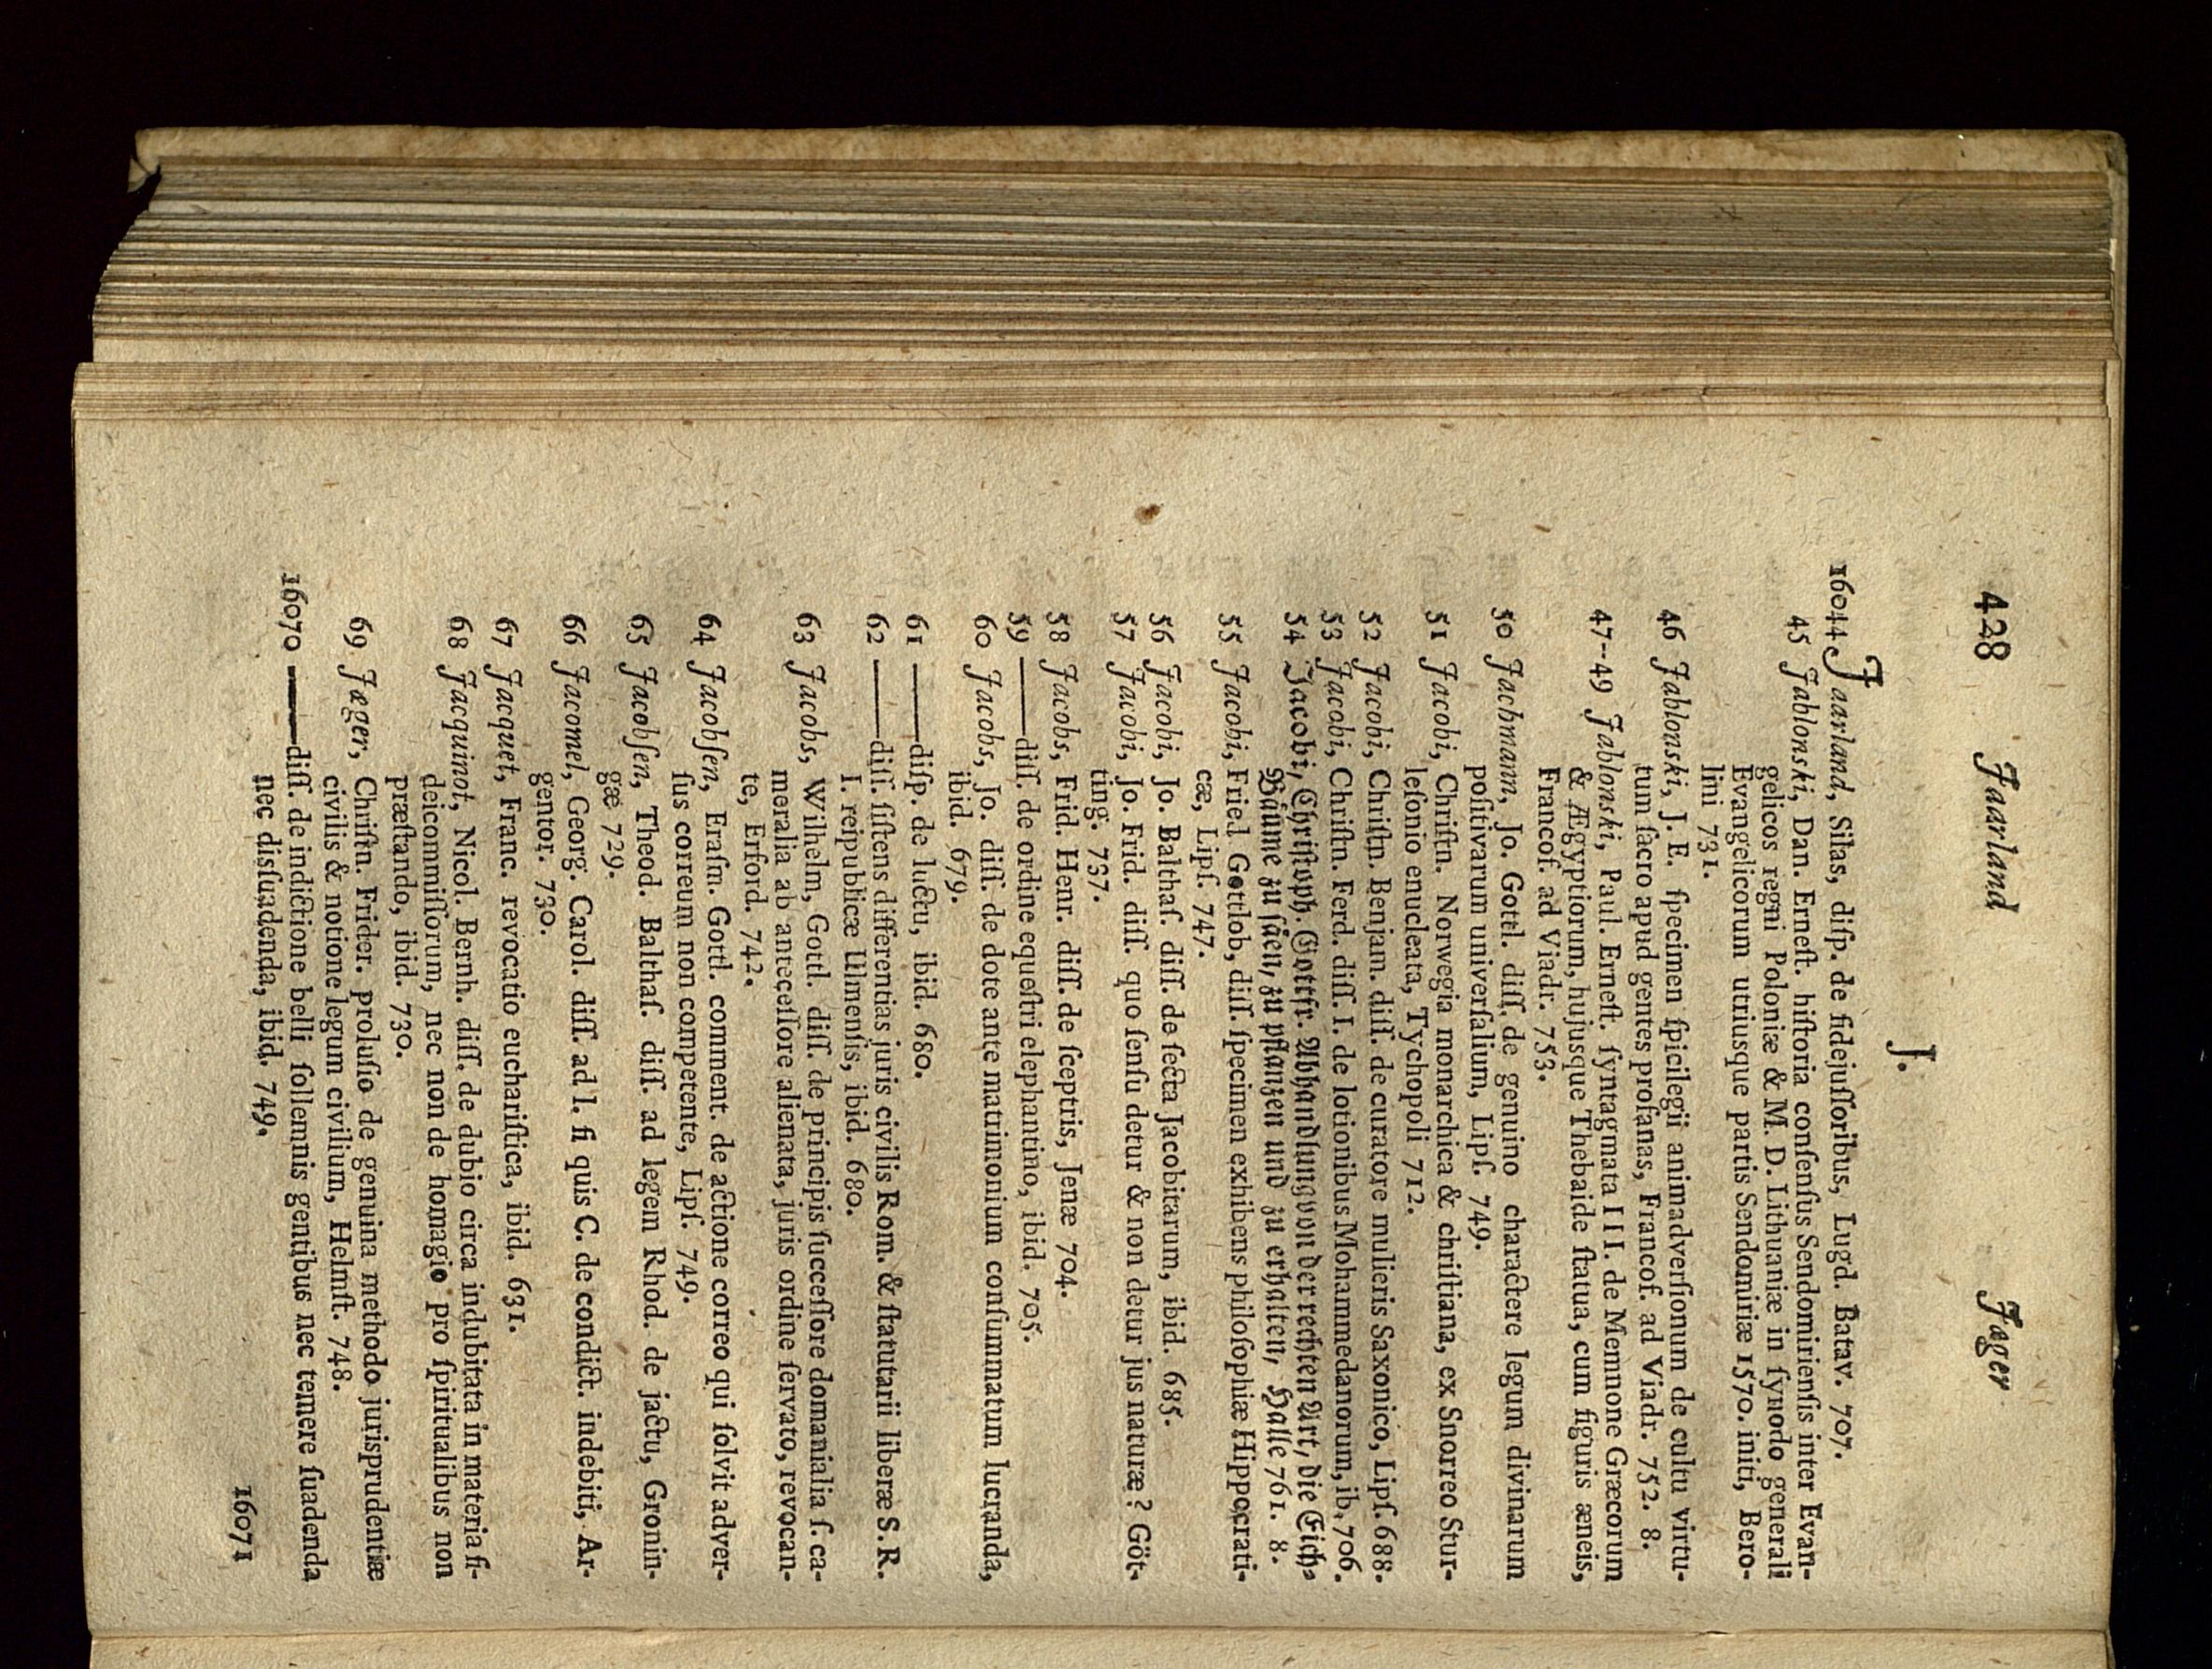 428 Jaarland Jæger
J.
16044 Jaarland, Silas, diſp. de fidejuſſoribus, Lugd. Batav. 707.
45 Jablonski, Dan. Erneſt. hiſtoria conſenſus Sendomirienſis inter Evan-
gelicos regni Poloniæ & M. D. Lithuaniæ in ſynodo generali
Evangelicorum utriusque partis Sendomiriæ 1570. initi, Bero-
lini 731.
46 Jablonski, J. E. ſpecimen ſpicilegii animadverſionum de cultu virtu-
tum ſacro apud gentes profanas, Francof. ad Viadr. 752. 8.
47--49 Jablonski, Paul. Erneſt. ſyntagmata III. de Memnone Græcorum
& Ægyptiorum, hujusque Thebaide ſtatua, cum figuris æneis,
Francof. ad Viadr. 753.
50 Jachmann, Jo. Gottl. diſſ. de genuino charactere legum divinarum
poſitivarum univerſalium, Lipſ. 749.
51 Jacobi, Chriſtn. Norwegia monarchica & chriſtiana, ex Snorreo Stur-
leſonio enucleata, Tychopoli 712.
52 Jacobi, Chriſtn. Benjam. diſſ. de curatore mulieris Saxonico, Lipſ. 688.
53 Jacobi, Chriſtn. Ferd. diſſ. I. de lotionibus Mohammedanorum, ib. 706.
54 Jacobi, Chriſtoph. Gottfr. Abhandlung von der rechten Art, die Eich-
Bäume zu ſäen, zu pflanzen und zu erhalten, Halle 761. 8.
55 Jacobi, Fried. Gottlob, diſſ. ſpecimen exhibens philoſophiæ Hippocrati-
cæ, Lipſ. 747.
56 Jacobi, Jo. Balthaſ. diſſ. de ſecta Jacobitarum, ibid. 685.
57 Jacobi, Jo. Frid. diſſ. quo ſenſu detur & non detur jus naturæ? Göt-
ting. 737.
58 Jacobs, Frid. Henr. diſſ. de ſceptris, Jenæ 704.
59 ——— diſſ. de ordine equeſtri elephantino, ibid. 705.
60 Jacobs, Jo. diſſ. de dote ante matrimonium conſummatum lucranda,
ibid. 679.
61 ——— diſp. de luctu, ibid. 680.
62 ——— diſſ. ſiſtens differentias juris civilis Rom. & ſtatutarii liberæ S. R.
I. reipublicæ Ulmenſis, ibid. 680.
63 Jacobs, Wilhelm, Gottl. diſſ. de principis ſucceſſore domanialia ſ. ca-
meralia ab anteceſſore alienata, juris ordine ſervato, revocan-
te, Erford. 742.
64 Jacobſen, Eraſm. Gottl. comment. de actione correo qui ſolvit adver-
ſus correum non competente, Lipſ. 749.
65 Jacobſen, Theod. Balthaſ. diſſ. ad legem Rhod. de jactu, Gronin-
gæ 729.
66 Jacomel, Georg. Carol. diſſ. ad l. ſi quis C. de condict. indebiti, Ar-
gentor. 730.
67 Jacquet, Franc. revocatio euchariſtica, ibid. 631.
68 Jacquinot, Nicol. Bernh. diſſ. de dubio circa indubitata in materia fi-
deicommiſſorum, nec non de homagio pro ſpiritualibus non
præſtando, ibid. 730.
69 Jæger, Chriſtn. Frider. proluſio de genuina methodo jurisprudentiæ
civilis & notione legum civilium, Helmſt. 748.
16070 ——— diſſ. de indictione belli ſollemnis gentibus nec temere ſuadenda
nec disſuadenda, ibid. 749.
16071